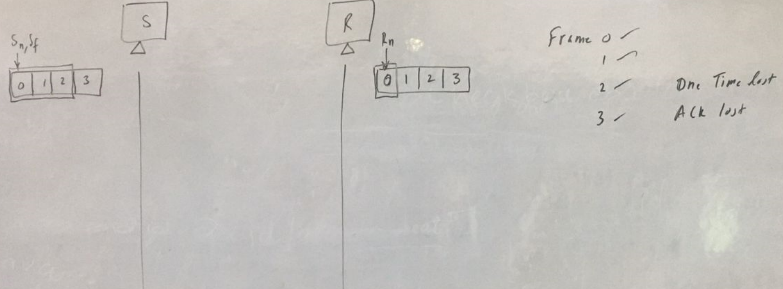 Sn, Sf
S
R
Rn
0 1 2 3
0 1 2 3
Frame 0 ✓
1 ✓
2 ✓ One Time lost
3 ✓ Ack lost